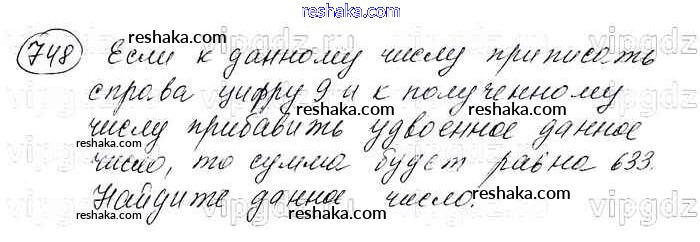 reshaka.com
748 Если к данному числу приписать
reshaka.com
справа цифру 9 и к полученному
reshaka.com
числу прибавить удвоенное данное
reshaka.com
число, то сумма будет равна 633.
reshaka.com
Найдите данное число.
reshaka.com
vipgdz